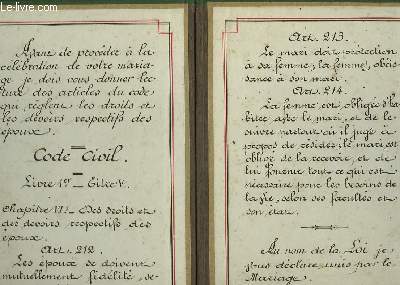 Avant de procéder à la
célébration de votre maria-
ge je dois vous donner lec-
ture des articles du code
qui règlent les droits et
les devoirs respectifs des
époux.
Code Civil.
Livre 1er Titre V.
Chapitre VI. Des droits et
des devoirs respectifs des
époux.
Art. 212.
Les époux se doivent
mutuellement fidélité, se-
Art. 213.
Le mari doit protection
à sa femme, la femme, obéis-
sance à son mari.
Art. 214.
La femme est obligée d'ha-
biter avec le mari, et de le
suivre partout où il juge à
propos de résider; le mari est
obligé de la recevoir, et de
lui fournir tout ce qui est
nécessaire pour les besoins de
la vie, selon ses facultés et
son état.
Au nom de la Loi je
vous déclare unis par le
Mariage.